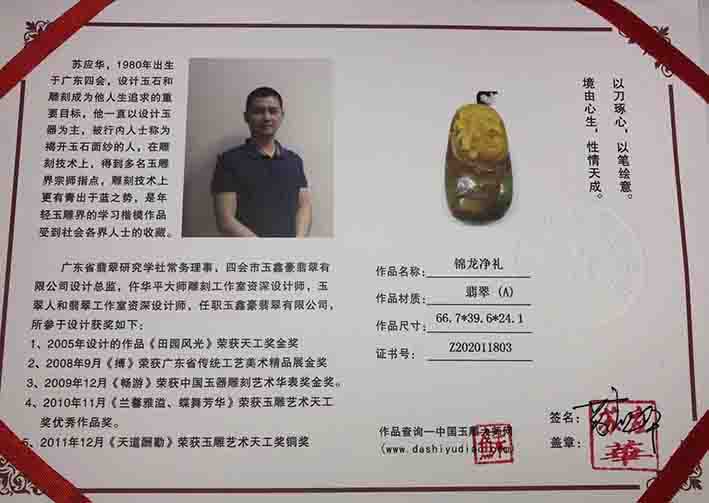 苏应华，1980年出生
于广东四会，设计玉石和
雕刻成为他人生追求的重
要目标，他一直以设计玉
器为主，被行内人士称为
揭开玉石面纱的人，在雕
刻技术上，得到多名玉雕
界宗师指点，雕刻技术上
更有青出于蓝之势，是年
轻玉雕界的学习楷模作品
受到社会各界人士的收藏。
广东省翡翠研究学社常务理事，四会市玉鑫豪翡翠有
限公司设计总监，仵华平大师雕刻工作室资深设计师，玉
翠人和翡翠工作室资深设计师，任职玉鑫豪翡翠有限公司，
所参于设计获奖如下：
1、2005年设计的作品《田园风光》荣获天工奖金奖
2、2008年9月《搏》荣获广东省传统工艺美术精品展金奖
3、2009年12月《畅游》荣获中国玉器雕刻艺术华表奖金奖。
4、2010年11月《兰馨雅溢、蝶舞芳华》荣获玉雕艺术天工
奖优秀作品奖。
5、2011年12月《天道酬勤》荣获玉雕艺术天工奖铜奖
以刀琢心，以笔绘意。
境由心生，性情天成。
作品名称：锦龙净礼
作品材质：翡翠（A）
作品尺寸：66.7*39.6*24.1
证书号：Z202011803
作品查询一中国玉雕
(www.dashiyudiao
签名：
盖章：
華